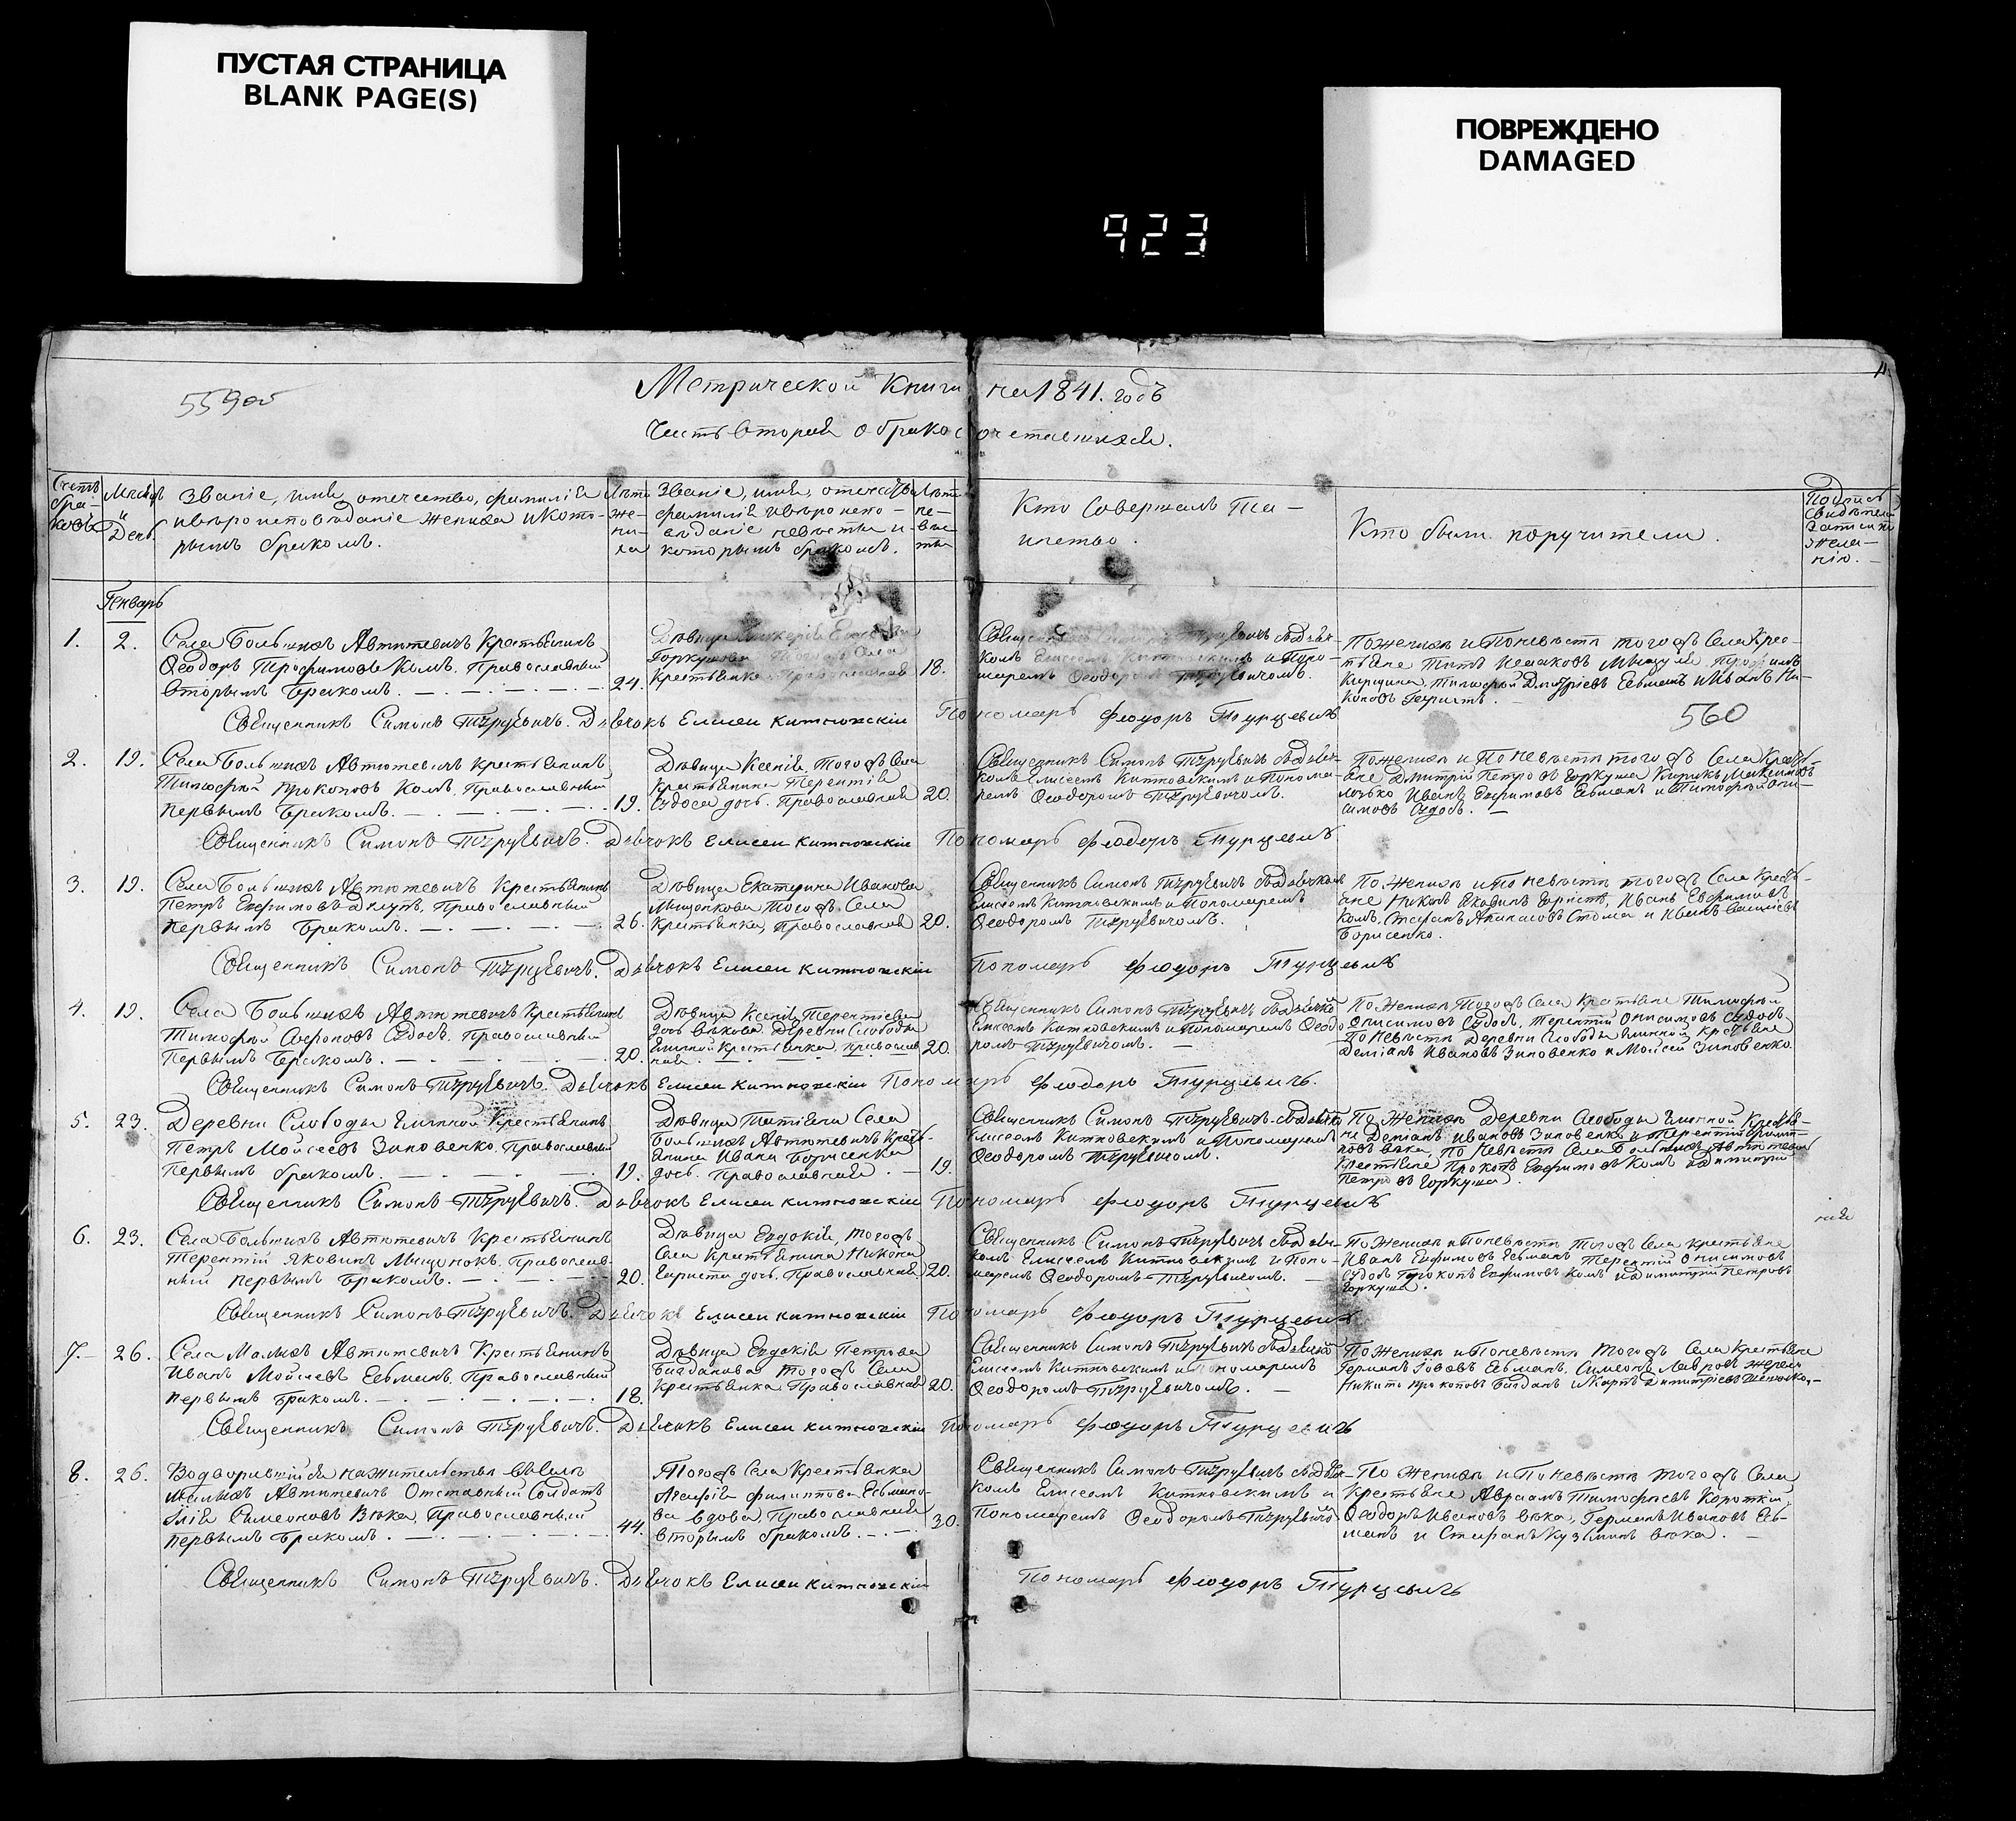 ПУСТАЯ СТРАНИЦА
BLANK PAGE(S)
ПОВРЕЖДЕНО
DAMAGED
923
559об
Метрической Книги на 1841. годъ
Часть вторая о бракосочетавшихся.
Счетъ бра-ковъ
Мѣсяцъ и День.
Званіе, имя, отечество, фамилія
и вѣроисповѣданіе жениха и кото-
рымъ бракомъ.
Лѣта же-ни-ха
Званіе, имя, отечество
фамилія и вѣроиспо-
вѣданіе невѣсты и
которымъ бракомъ.
Лѣта не-вѣс-ты
Кто совершалъ Та-
инство.
Кто были поручители.
Подпись
свидѣтелей
Январь
1. 2. Села Большихъ Автютевичъ Крестьянинъ
Ѳеодоръ Трофимовъ Кымъ, Православный
вторымъ бракомъ. 24.
Дѣвица
Горкушова того жъ Села
Крестьянка Православная 18.
Священникъ Турцевичъ съ дьяч-
комъ Елисеем и Поно-
маремъ Ѳеодоромъ Турцевичомъ.
По женихѣ и по невѣстѣ того жъ Села Крес-
тьяне Титъ
Тимофей Дмитріевъ Есьманъ и Иванъ Ни-
коновъ
Священникъ Симонъ Турцевичъ. Дьячокъ Елисеи Китновскіи Пономарь Феодоръ Турцевичъ
560
2. 19. Села Большихъ Автютевичъ Крестьянинъ
Тимофей Прокоповъ Комъ, Православный
первымъ бракомъ. 19.
Дѣвица Ксенія, того жъ Села
Крестьянина Терентія
Судоса дочь, Православная 20.
Священникъ Симонъ Турцевичъ съ дьяч-
комъ Елисеемъ Китновскимъ и Понома-
ремъ Ѳеодоромъ Турцевичомъ.
По женихѣ и по невѣстѣ того жъ Села Кресть-
яне Дмитрій Петровъ Горкуша, Кирикъ Максимовъ
Иванъ Евфимовъ Есьманъ и Тимофей Они-
симовъ Судосъ.
Священникъ Симонъ Турцевичъ. Дьячокъ Елисеи Китновскіи Пономарь Феодоръ Турцевичъ
3. 19. Села Большихъ Автютевичъ Крестьянинъ
Петръ Евфимовъ Православный
первымъ бракомъ. 26.
Дѣвица Екатерина Иванова
Мищонкова того жъ Села
Крестьянка, Православная 20.
Священникъ Симонъ Турцевичъ съ дьячкомъ
Елисеемъ Китновскимъ и Пономаремъ
Ѳеодоромъ Турцевичомъ.
По женихѣ и по невѣстѣ того жъ Села Кресть-
яне Никонъ Яковинъ Иванъ Евфимовъ
Комъ, Стефанъ Апанасовъ Стома и Иванъ
Борисенко.
Священникъ Симонъ Турцевичъ. Дьячокъ Елисеи Китновскіи Пономарь Феодоръ Турцевичъ
4. 19. Села Большихъ Автютевичъ Крестьянинъ
Тимофей Судосъ, Православный
первымъ бракомъ. 20.
Дѣвица Ксенія Терентіева
дочь Вякова Деревни Слободы
Крестьянка, Православ-
ная 20.
Священникъ Симонъ Турцевичъ съ дьячко
Елисеемъ Китновскимъ и Пономаремъ Ѳеодо
ромъ Турцевичомъ.
По женихѣ того жъ Села Крестьяне Тимофей
Онисимовъ Судосъ, Терентій Онисимовъ Судосъ
По невѣстѣ Деревни Слободы Крестьяне
Деміанъ Ивановъ Зиновенко и Мойсей Зиновенко.
Священникъ Симонъ Турцевичъ. Дьячокъ Елисеи Китновскіи Пономарь Феодоръ Турцевичъ.
5. 23. Деревни Слободы Крестьянинъ
Петръ Мойсеевъ Зиновенко, Православный
первымъ бракомъ. 19.
Дѣвица Татіяна Села
Большихъ Автютевичъ Кресть-
янина Ивана Борисенка
дочь, Православная. 19.
Священникъ Симонъ Турцевичъ съ дьячко
Елисеемъ Китновскимъ и Пономаремъ
Ѳеодоромъ Турцевичомъ.
По женихѣ Деревни Слободы Крестья-
не Деміанъ Ивановъ Зиновенко и Терентій
По невѣстѣ Села Большихъ Автютевичъ
Крестьяне Прокопъ Евфимовъ Комъ и Димитрій
Петровъ Горкуша.
Священникъ Симонъ Турцевичъ. Дьячокъ Елисеи Китновскіи Пономарь Феодоръ Турцевичъ
6. 23. Села Большихъ Автютевичъ Крестьянинъ
Терентій Яковинъ Мищонокъ, Православ-
ный первымъ бракомъ. 20.
Дѣвица Евдокія, того жъ
Села Крестьянина Никона
дочь, Православная 20.
Священникъ Симонъ Турцевичъ съ дьяч-
комъ Елисеемъ Китновскимъ и Поно-
маремъ Ѳеодоромъ Турцевичомъ.
По женихѣ и по невѣстѣ того жъ Села Крестьяне
Иванъ Евфимовъ Есьманъ, Терентій Онисимовъ
Судосъ, Прокопъ Евфимовъ Комъ и Димитрій Петровъ
Горкуша.
Священникъ Симонъ Турцевичъ. Дьячокъ Елисеи Китновскіи Пономарь Феодоръ Турцевичъ
7. 26. Села Малыхъ Автютевичъ Крестьянинъ
Иванъ Мойсеевъ Есьманъ, Православный
первымъ бракомъ. 18.
Дѣвица Евдокія Петрова
Богданова того жъ Села
Крестьянка Православная 20.
Священникъ Симонъ Турцевичъ съ дьячко
Елисеемъ Китновскимъ и Пономаремъ
Ѳеодоромъ Турцевичомъ.
По женихѣ и по невѣстѣ того жъ Села Крестьяне
Германъ Есьманъ, Симеонъ Лавровъ
Никита Прокоповъ Богданъ и Карпъ Димитріевъ
Священникъ Симонъ Турцевичъ. Дьячокъ Елисеи Китновскіи Пономарь Феодоръ Турцевичъ
8. 26. Водворившійся на жительство въ Селѣ
Малыхъ Автютевичъ Отставный Солдатъ
Илія Симеоновъ Вяка, Православный
первымъ бракомъ. 44.
Того жъ Села Крестьянка
Агафія Филиппова Есьмано-
ва вдова, Православная
вторымъ бракомъ. 30.
Священникъ Симонъ Турцевичъ съ дьяч-
комъ Елисеемъ Китновскимъ и
Пономаремъ Ѳеодоромъ Турцевичо
По женихѣ и по невѣстѣ того жъ Села
Крестьяне Авраамъ Тимофѣевъ Короткій,
Ѳеодоръ Ивановъ Вяка, Германъ Ивановъ Есь-
манъ и Стефанъ Кузьминъ Вяка.
Священникъ Симонъ Турцевичъ. Дьячокъ Елисеи Китновскіи Пономарь Феодоръ Турцевичъ